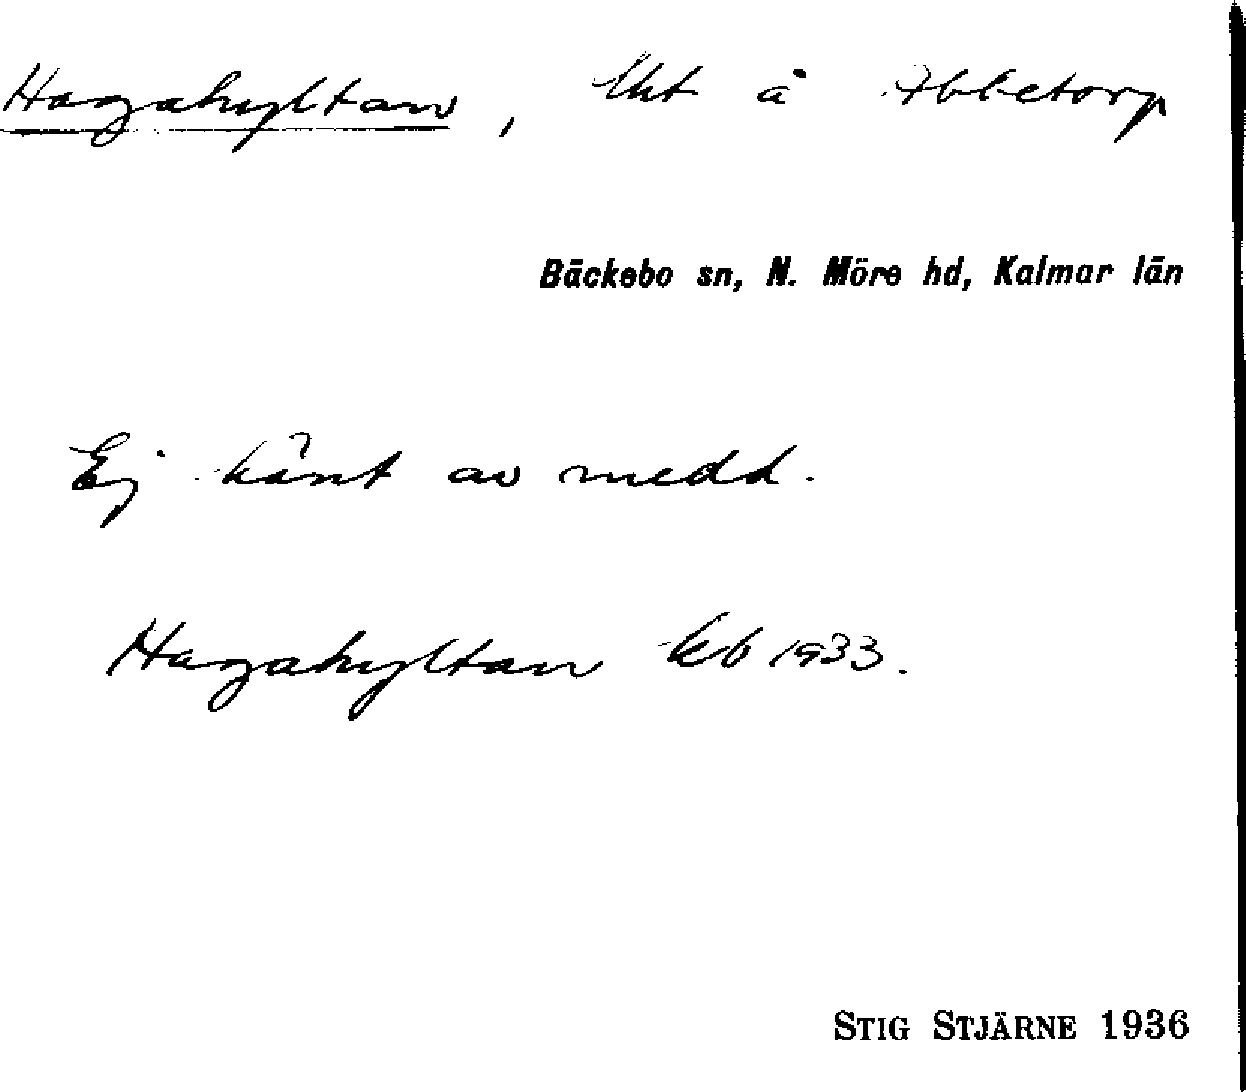 Hagahyltan, lht å Abbetorp
Bäckebo sn, N. Möre hd, Kalmar län
Ej känt av medd.
Hagahyltan kb 1933.
STIG STJÄRNE 1936